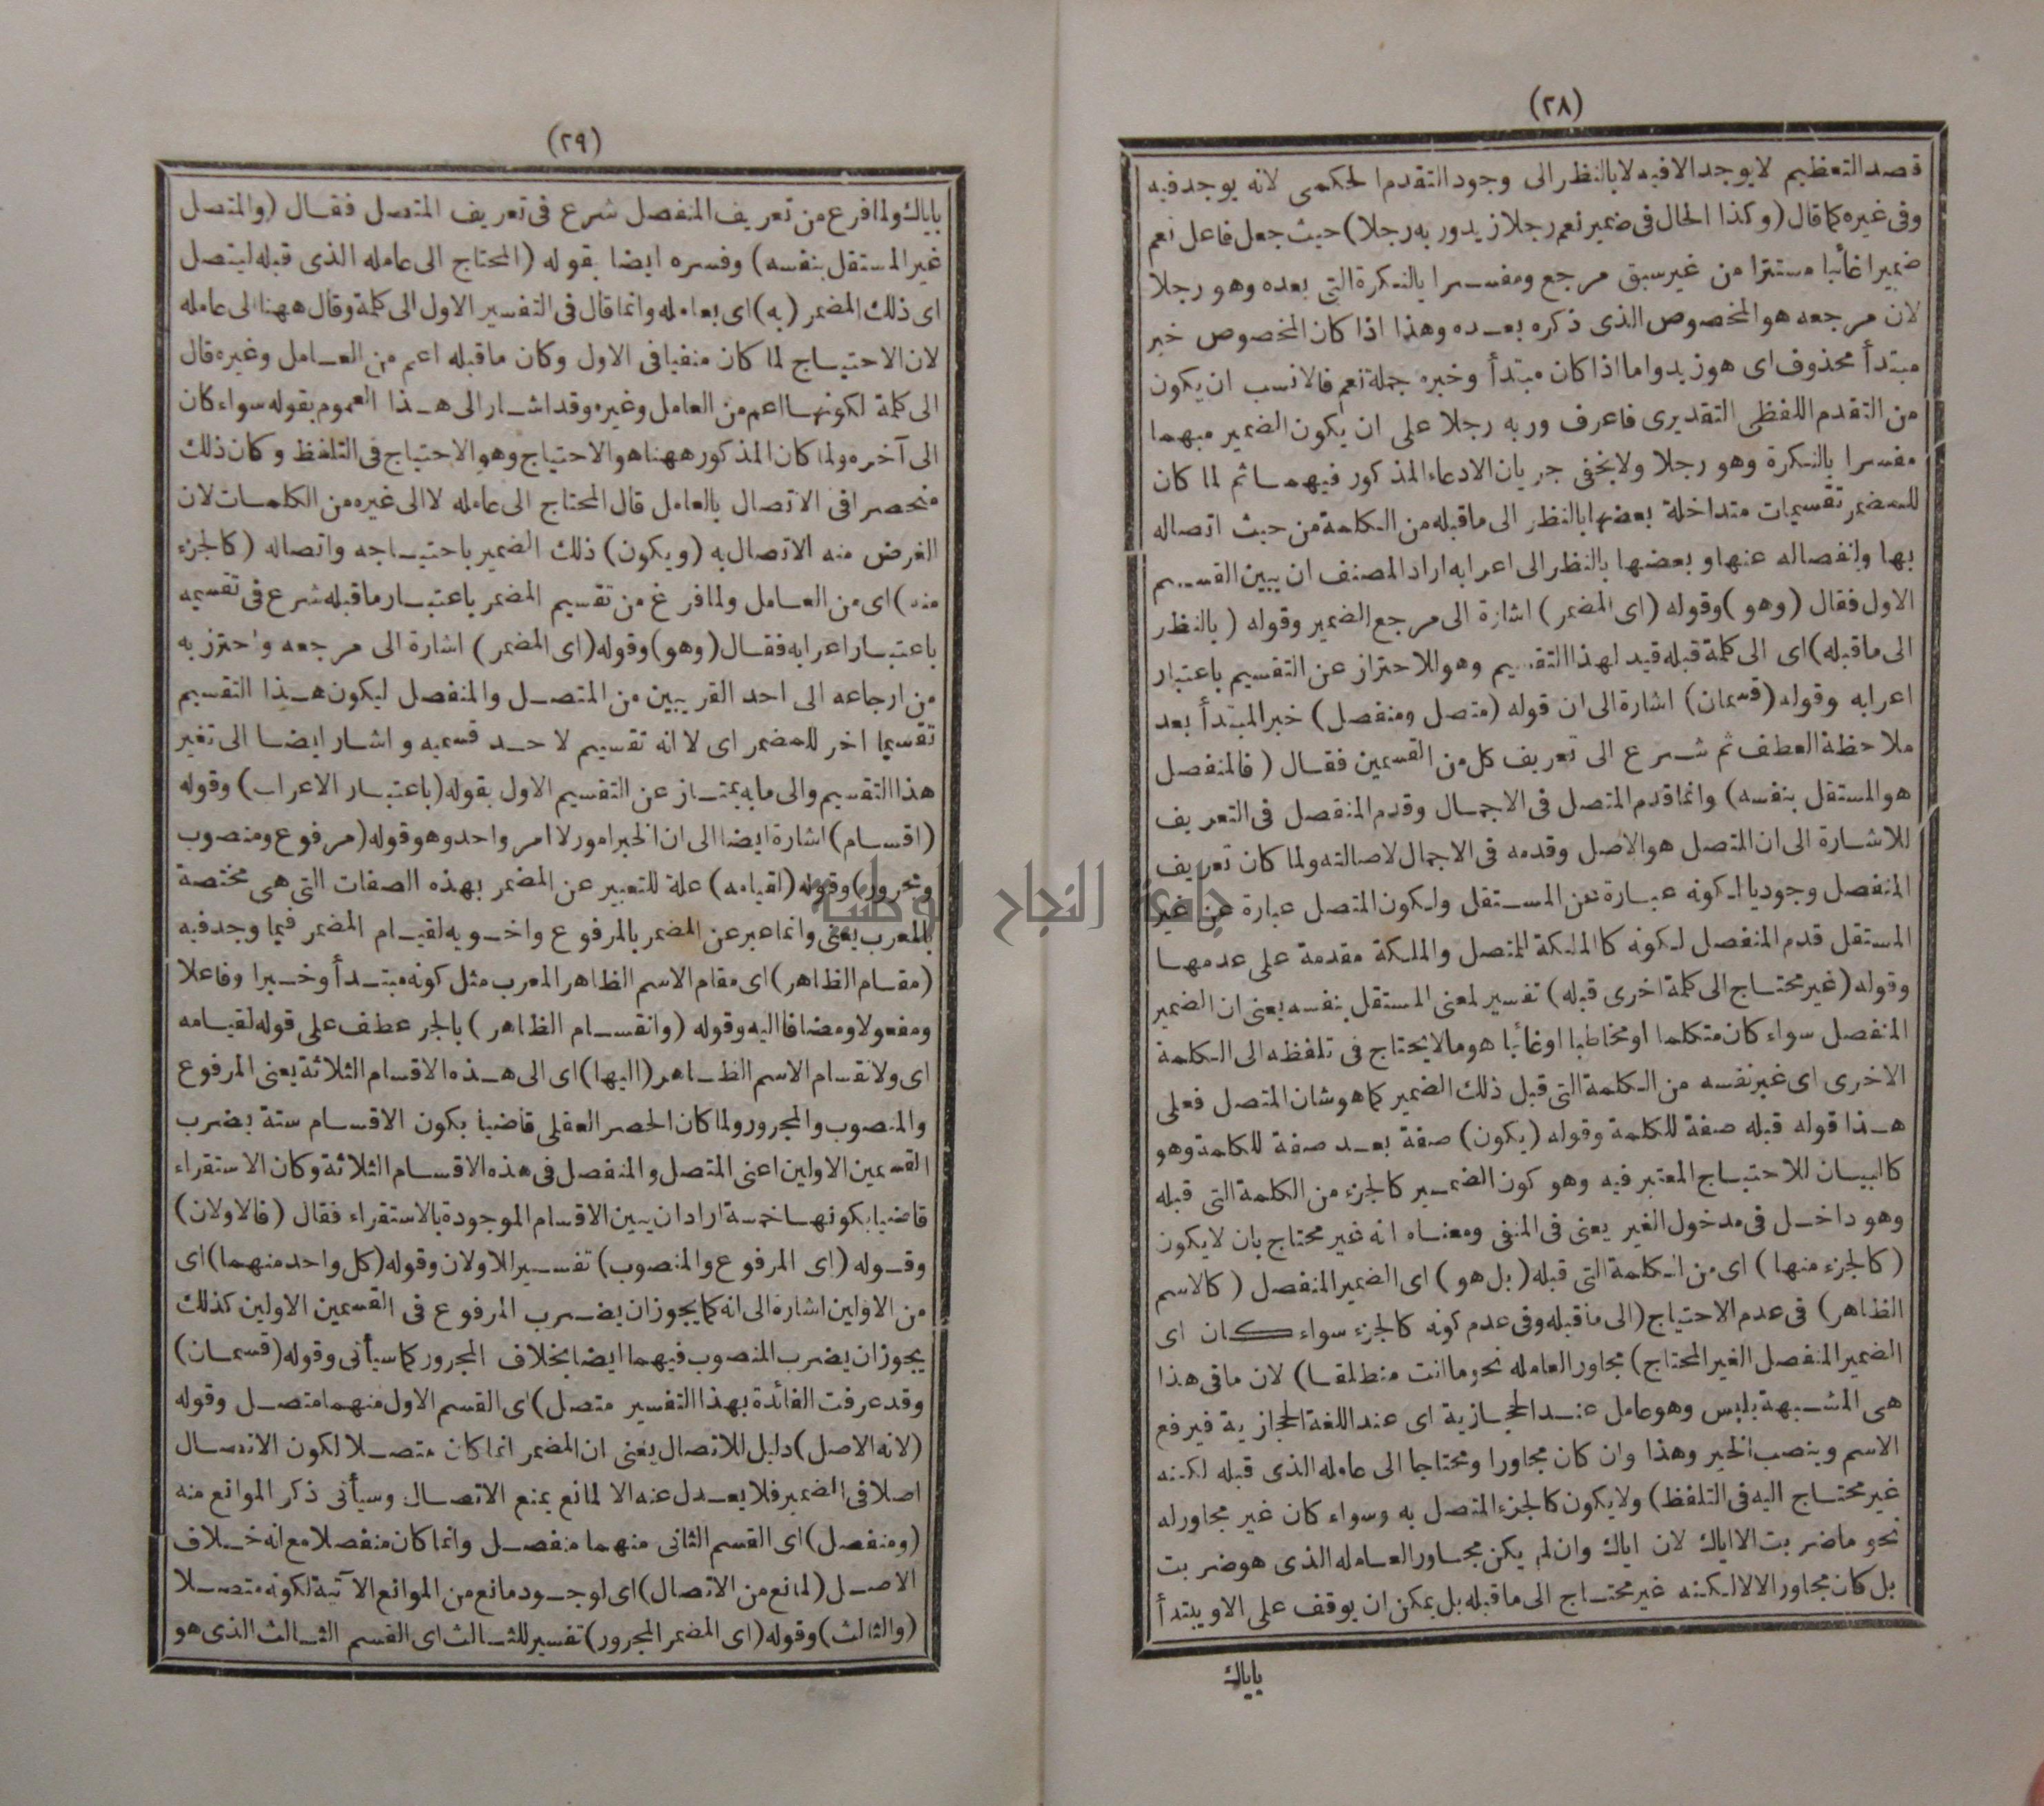 (٢٨)
قصد التعظيم لا يوجد الا فيه لا بالنظر الى وجود التقدم الحكمى لانه يوجد فيه
وفى غيره كما قال (وكذا الحال فى ضمير نعم رجلا زيد وربه رجلا) حيث جعل فاعل نعم
ضميرا غائبا مستترا من غير سبق مرجع ومفسرا بالنكرة التى بعده وهو رجلا
لان مرجعه هو المخصوص الذى ذكره بعده وهذا اذا كان المخصوص خبر
مبتدأ محذوف اى هو زيد واما اذا كان مبتدأ وخبره جملة نعم فالانسب ان يكون
من التقدم اللفظى التقديرى فاعرف وربه رجلا على ان يكون الضمير مبهما
مفسرا بالنكرة وهو رجلا ولا يخفى جريان الادعاء المذكور فيهما ثم لما كان
للمضمر تقسيمات متداخلة بعضها بالنظر الى ما قبله من الكلمة من حيث اتصاله
بها وانفصاله عنها وبعضها بالنظر الى اعرابه اراد المصنف ان يبين القسيم
الاول فقال (وهو) وقوله (اى المضمر) اشارة الى مرجع الضمير وقوله (بالنظر
الى ما قبله) اى الى كلمة قبله قيد لهذا التقسيم وهو للاحتراز عن التقسيم باعتبار
اعرابه وقوله (قسمان) اشارة الى ان قوله (متصل ومنفصل) خبر المبتدأ بعد
ملاحظة العطف ثم شرع الى تعريف كل من القسمين فقال (فالمنفصل
هو المستقل بنفسه) وانما قدم المتصل فى الاجمال وقدم المنفصل فى التعريف
للاشارة الى ان المتصل هو الاصل وقدمه فى الاجمال لاصالته ولما كان تعريف
المنفصل وجوديا لكونه عبارة عن المستقل ولكون المتصل عبارة عن غير
المستقل قدم المنفصل لكونه كالملكة للمتصل والملكة مقدمة على عدمها
وقوله (غير محتاج الى كلمة اخرى قبله) تفسير لمعنى المستقل بنفسه يعنى ان الضمير
المنفصل سواء كان متكلما او مخاطبا او غائبا هو ما لا يحتاج فى تلفظه الى الكلمة
الاخرى اى غير نفسه من الكلمة التى قبل ذلك الضمير كما هو شان المتصل فعلى
هذا قوله قبله صفة للكلمة وقوله (يكون) صفة بعد صفة للكلمة وهو
كالبيان للاحتياج المعتبر فيه وهو كون الضمير كالجزء من الكلمة التى قبله
وهو داخل فى مدخول الغير يعنى فى المنفى ومعناه انه غير محتاج بان لا يكون
(كالجزء منها) اى من الكلمة التى قبله (بل هو) اى الضمير المنفصل (كالاسم
الظاهر) فى عدم الاحتياج (الى ما قبله وفى عدم كونه كالجزء سواء كان اى
الضمير المنفصل الغير المحتاج) مجاورا لعامله نحو ما انت منطلقا) لان ما فى هذا
هى المشبهة بليس وهو عامل عند الحجازية اى عند اللغة الحجازية فيرفع
الاسم وينصب الخبر وهذا وان كان مجاورا ومحتاجا الى عامله الذى قبله لكنه
غير محتاج اليه فى التلفظ) ولا يكون كالجزء المتصل به وسواء كان غير مجاور له
نحو ما ضربت الا اياك لان اياك وان لم يكن مجاورا لعامله الذى هو ضربت
بل كان مجاورا لالا لكنه غير محتاج الى ما قبله بل يمكن ان يوقف على الا ويبتدأ
باياك
(٢٩)
باياك ولما فرغ من تعريف المنفصل شرع فى تعريف المتصل فقال (والمتصل
غير المستقل بنفسه) وفسره ايضا بقوله (المحتاج الى عامله الذى قبله ليتصل
اى ذلك المضمر (به) اى بعامله وانما قال فى التفسير الاول الى كلمة وقال ههنا الى عامله
لان الاحتياج لما كان منفيا فى الاول وكان ما قبله اعم من العامل وغيره قال
الى كلمة لكونها اعم من العامل وغيره وقد اشار الى هذا العموم بقوله سواء كان
الى آخره ولما كان المذكور ههنا هو الاحتياج وهو الاحتياج فى التلفظ وكان ذلك
منحصرا فى الاتصال بالعامل قال المحتاج الى عامله لا الى غيره من الكلمات لان
الغرض منه الاتصال به (ويكون) ذلك الضمير باحتياجه واتصاله (كالجزء
منه) اى من العامل ولما فرغ من تقسيم المضمر باعتبار ما قبله شرع فى تقسيمه
باعتبار اعرابه فقال (وهو) وقوله (اى المضمر) اشارة الى مرجعه واحترز به
من ارجاعه الى احد القريبين من المتصل والمنفصل ليكون هذا التقسيم
تقسيما اخر للمضمر اى لا انه تقسيم لاحد قسميه واشار ايضا الى تغير
هذا التقسيم والى ما به يمتاز عن التقسيم الاول بقوله (باعتبار الاعراب) وقوله
(اقسام) اشارة ايضا الى ان الخبر امور لا امر واحد وهو قوله (مرفوع ومنصوب
ومجرور) وقوله (لقيامه) علة للتعبير عن المضمر بهذه الصفات التى هى مختصة
بالمعرب يعنى وانما عبر عن المضمر بالمرفوع واخويه لقيام المضمر فيما وجد فيه
(مقام الظاهر) اى مقام الاسم الظاهر المعرب مثل كونه مبتدأ وخبرا وفاعلا
ومفعولا ومضافا اليه وقوله (وانقسام الظاهر) بالجر عطف على قوله لقيامه
اى ولانقسام الاسم الظاهر (اليها) اى الى هذه الاقسام الثلاثة يعنى المرفوع
والمنصوب والمجرور ولما كان الحصر العقلى قاضيا بكون الاقسام ستة بضرب
القسمين الاولين اعنى المتصل والمنفصل فى هذه الاقسام الثلاثة وكان الاستقراء
قاضيا بكونها خمسة اراد ان يبين الاقسام الموجودة بالاستقراء فقال (فالاولان)
وقوله (اى المرفوع والمنصوب) تفسير للاولان وقوله (كل واحد منهما) اى
من الاولين اشارة الى انه كما يجوز ان يضرب المرفوع فى القسمين الاولين كذلك
يجوز ان يضرب المنصوب فيهما ايضا بخلاف المجرور كما سيأتى وقوله (قسمان)
وقد عرفت الفائدة بهذا التفسير متصل) اى القسم الاول منهما متصل وقوله
(لانه الاصل) دليل للاتصال يعنى ان المضمر انما كان متصلا لكون الاتصال
اصلا فى الضمير فلا يعدل عنه الا لمانع يمنع الاتصال وسيأتى ذكر الموانع منه
(ومنفصل) اى القسم الثانى منهما منفصل وانما كان منفصلا مع انه خلاف
الاصل (لمانع من الاتصال) اى لوجود مانع من الموانع الآتية لكونه متصلا
(والثالث) وقوله (اى المضمر المجرور) تفسير للثالث اى القسم الثالث الذى هو
جامعة النجاح الوطنية